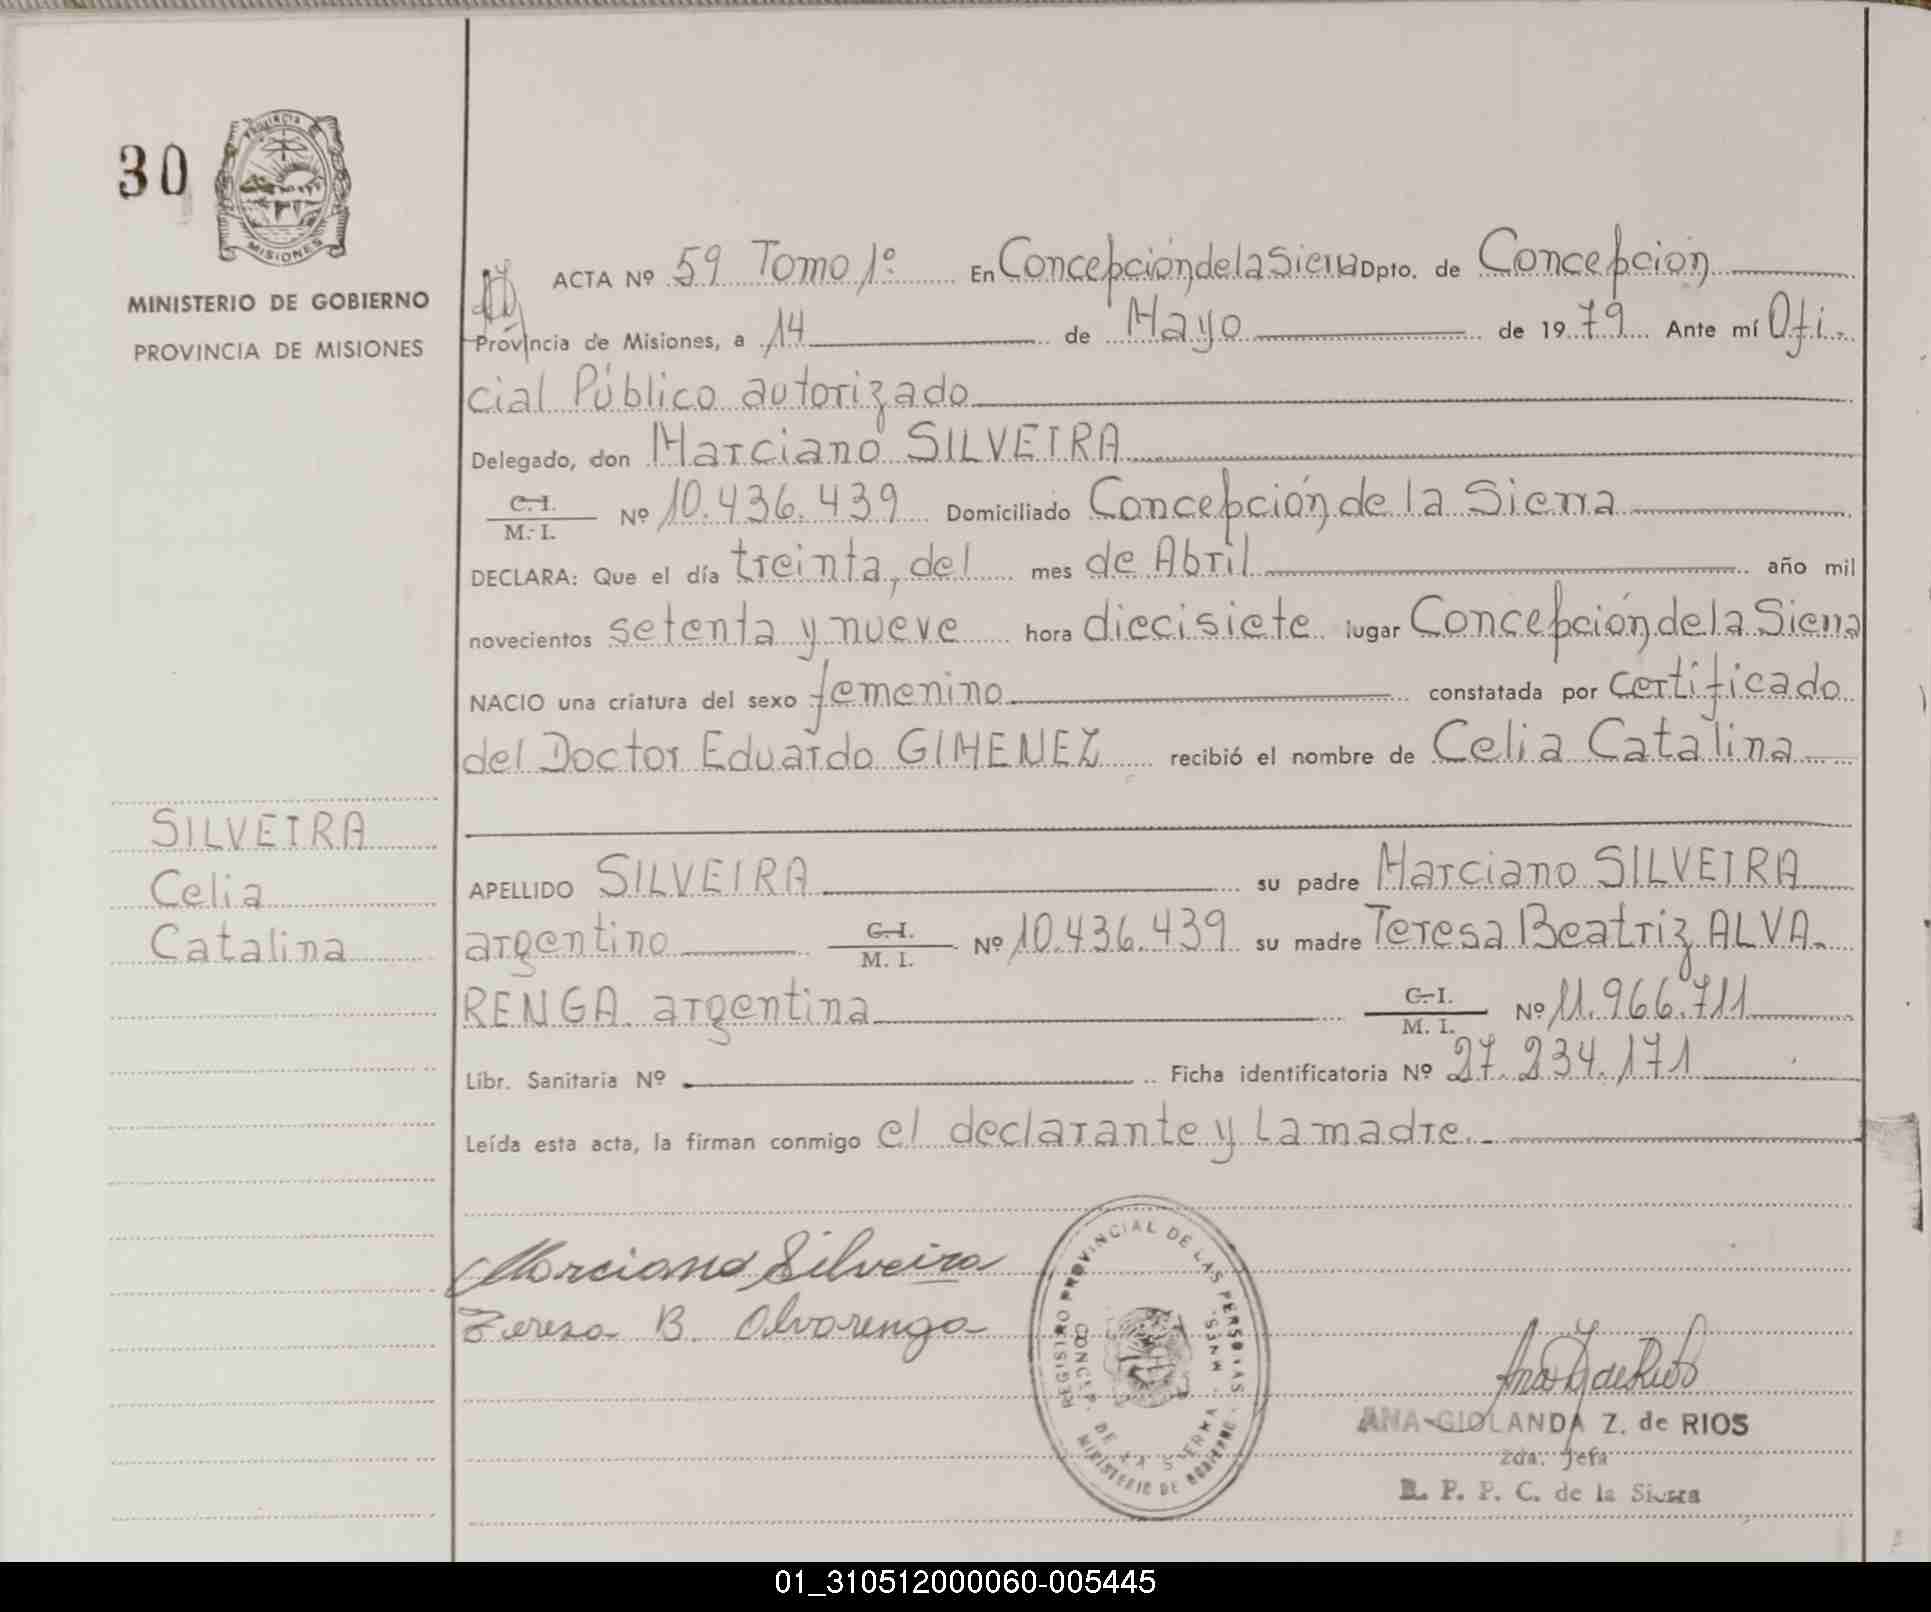 30
PROVINCIA
MISIONES
MINISTERIO DE GOBIERNO
PROVINCIA DE MISIONES
SILVEIRA
Celia
Catalina
ACTA Nº 59 Tomo 1º En Concepción de la Sierra Dpto. de Concepción
Provincia de Misiones, a 14 de Mayo de 1979 Ante mí Ofi-
cial Público autorizado
Delegado, don Marciano SILVEIRA
C.I.
M.I. Nº 10.436.439 Domiciliado Concepción de la Sierra
DECLARA: Que el día treinta, del mes de Abril año mil
novecientos setenta y nueve hora diecisiete lugar Concepción de la Sierra
NACIO una criatura del sexo femenino constatada por certificado
del Doctor Eduardo GIMENEZ recibió el nombre de Celia Catalina
APELLIDO SILVEIRA su padre Marciano SILVEIRA
argentino C.I. M. I. Nº 10.436.439 su madre Teresa Beatriz ALVA-
RENGA argentina C.I. M. I. Nº 11.966.711
Libr. Sanitaria Nº Ficha identificatoria Nº 27.234.171
Leída esta acta, la firman conmigo el declarante y La madre.-
Marciano Silveira
Teresa B. Alvarenga
REGISTRO PROVINCIAL DE LAS PERSONAS
CONCEP. DE LA SIERRA - MNES.
MINISTERIO DE GOBIERNO
ANA GIOLANDA Z. de RIOS
2da. Jefa
R. P. P. C. de la Sierra
01_310512000060-005445